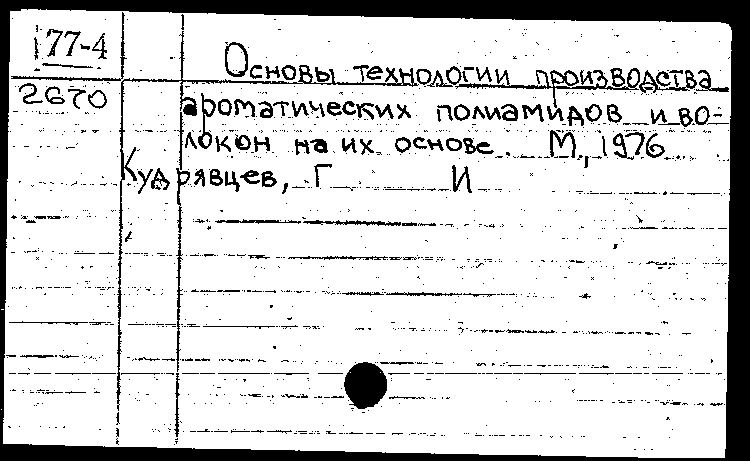 77-4
2670
Основы технологии производства
ароматических полиамидов и во-
локон на их основе. М., 1976
Кудрявцев, Г И